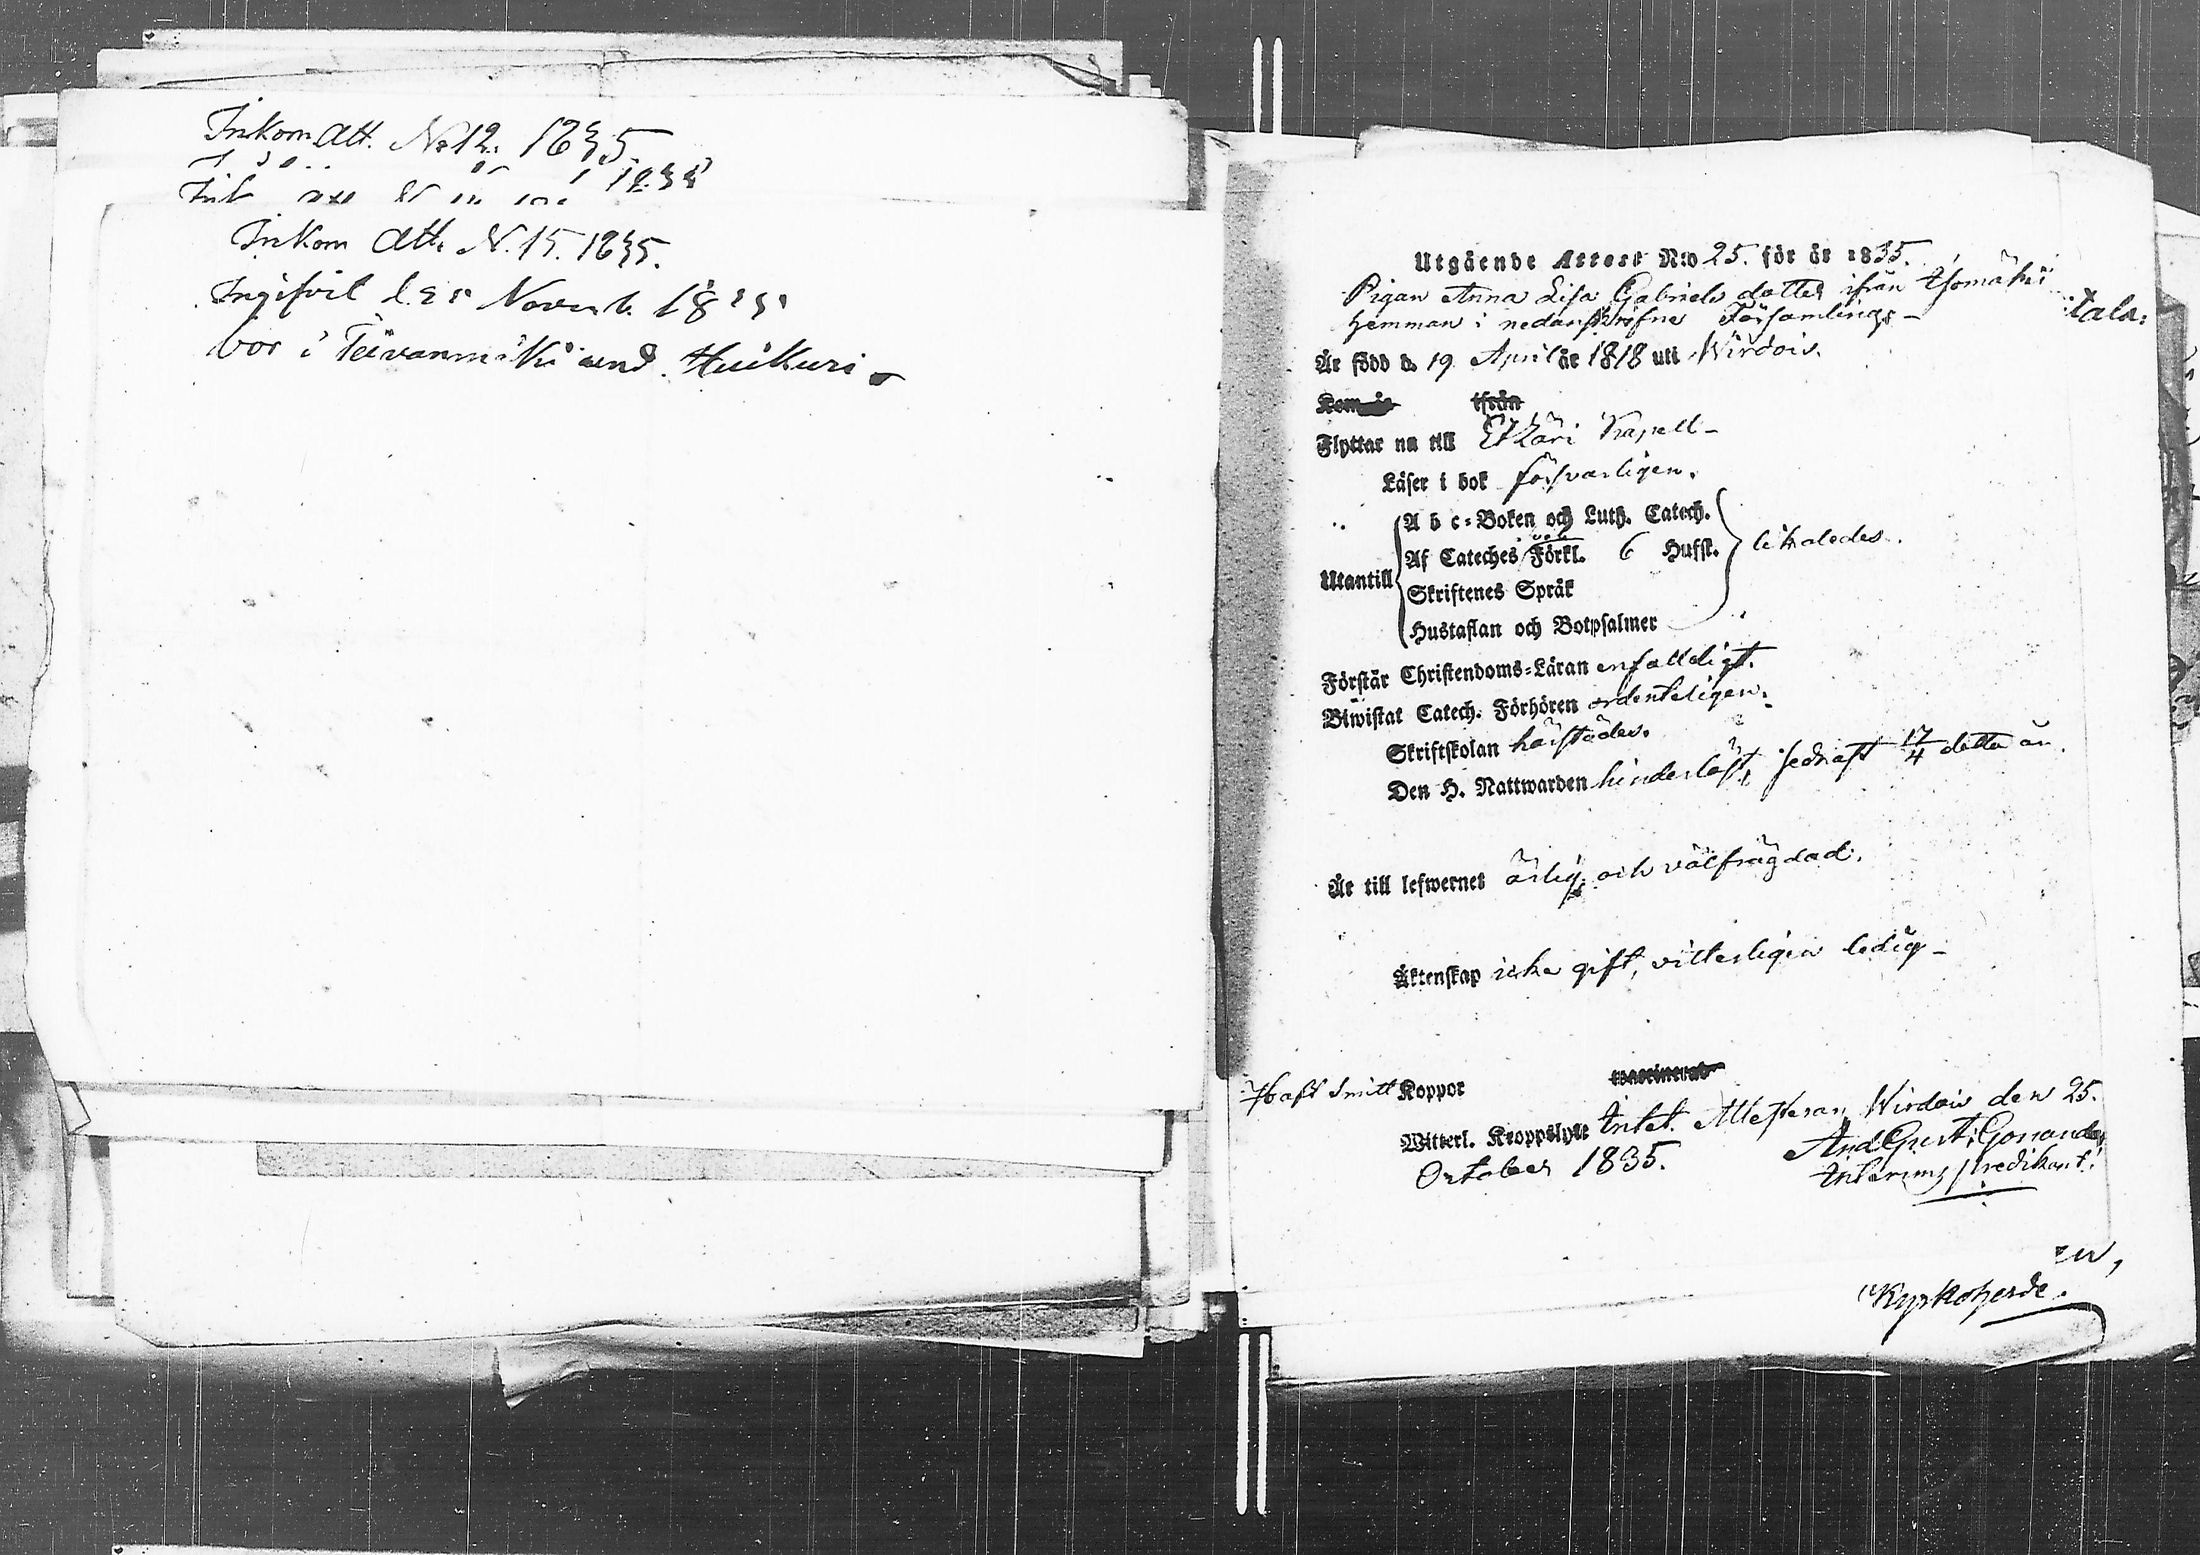 Inkom Att. No 12. 1835.
1835
Inkom Att. N. 15. 1835.
Ingifvit d. Novemb. 1835
bor i Teivanmäki und. Huikuri
Utgående Attest N:o 25. för år 1835.
Pigan Anna Lisa Gabriels dotter ifrån Isomäki
hemman i nedanskrifne Församlings-
Är född d. 19 April år 1818 uti Wirdois.
Kom år ifrån
Flyttar nu till Etzäri Kapell-
Läser i bok försvarligen.
A b c-Boken och Luth. Catech.
Af Cateches och Förkl. 6 Hufst. likaledes.
Utantill
Skriftenes Språk
Hustaflan och Botpsalmer
Förstår Christendoms-Läran enfalldigt.
Biwistat Catech. Förhören ordenteligen.
Skriftskolan härstädes.
Den H. Nattwarden hinderlöst, sednast 17/4 detta år.
Är till lefwernet ärlig och välfrägdad.
Äktenskap icke gift, vitterligen ledig-
Haft Smitt Koppor vaccinerad
Witterl. Kroppslyte Intet. Attesterar, Wirdois den 25.
October 1835. And. Gust. Gonander
Interims predikant.
Kyrkoherde.